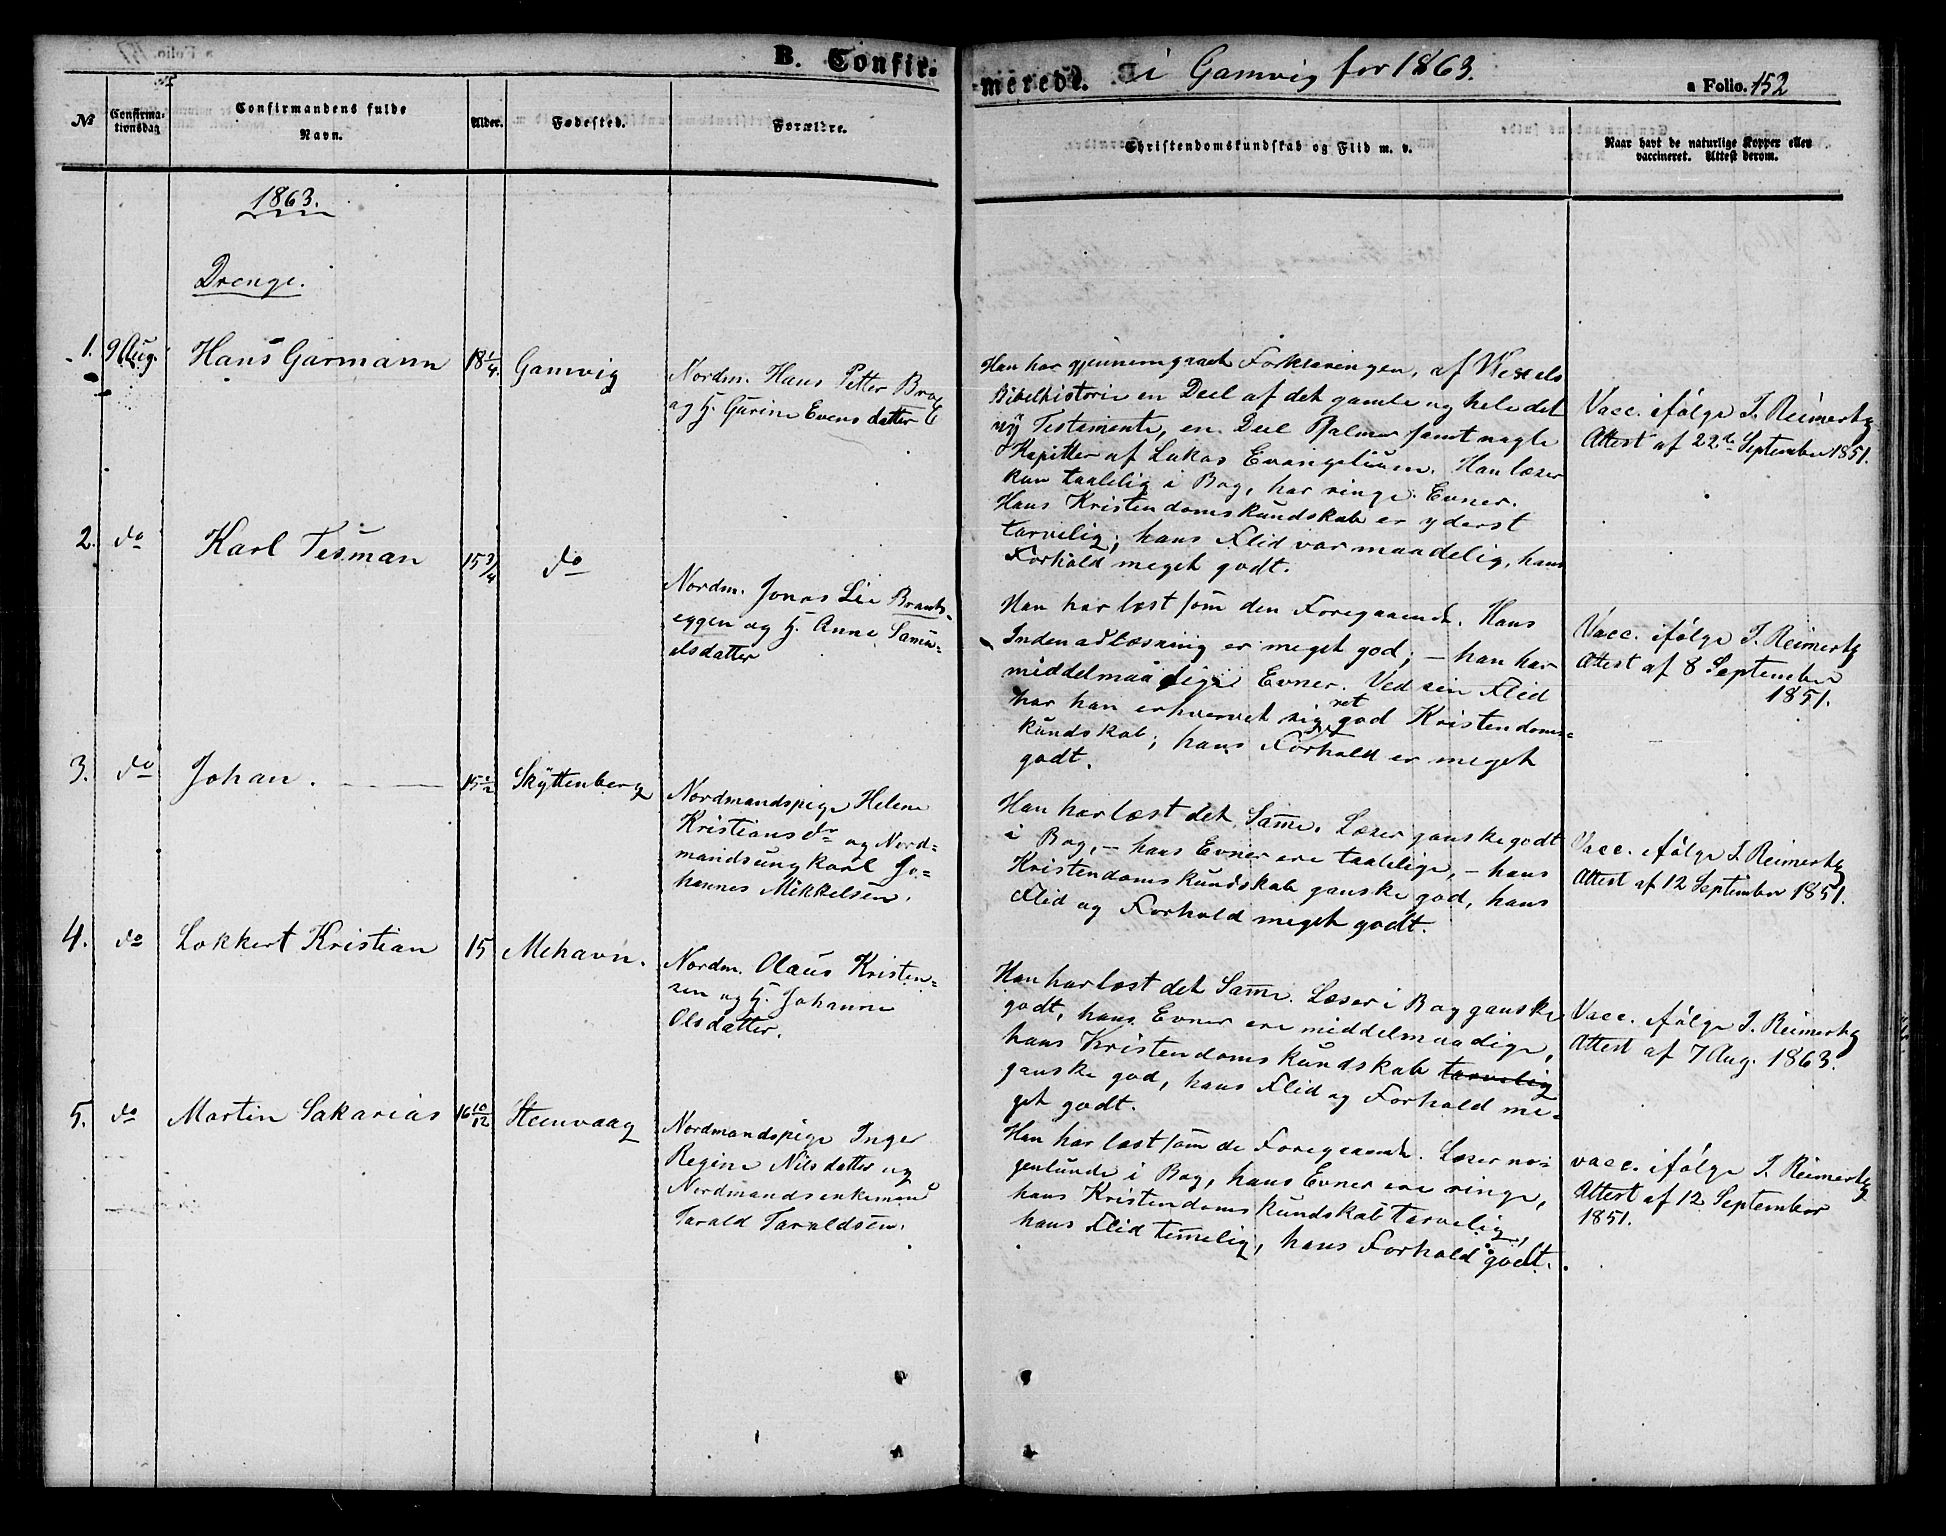 B. Confirmerede. i Gamvig for 1863.
a Folio. 152
No
Confirma-
tionsdag
Confirmandens fulde
Navn.
Alder.
Fødested.
Forældre.
Christendomskundskab og Flid m. v.
Naar havt de naturlige Kopper eller
vaccineret. Attest derom.
1863.
Drenge.
1. 9 Aug. Hans Garmann 18 1/4 Gamvig
Nordm. Hans Petter
og H. Gurine Evensdatter
Han har gjennemgaaet Forklaringen, af Wexels
Bibelhistorie en Deel af det gamle og hele det
ny Testamente, en Deel Psalmer samt nogle
Kapitler af Lukas Evangelium. Han læser
kun taalelig i Bog, har ringe Evner.
Hans Kristendomskundskab er yderst
tarvelig; hans Flid var maadelig, hans
Forhold meget godt.
Vacc. ifølge J. Reimers
Attest af 22de September 1851.
2. do Karl Tesman 15 3/4 do
Nordm. Jonas Lie Brands-
eggen og H. Anne Samu-
elsdatter
Han har læst som den Foregaaende. Hans
Indenadlæsning er meget god; - han har
middelmaadige Evner. Ved sin Flid
har han erhvervet sig ret god Kristendoms-
kundskab; hans Forhold er meget
godt.
Vacc. ifølge J. Reimers
Attest af 8 September
1851.
3. do Johan. 15 1/2 Skyttenberg
Nordmandspige Helene
Kristiansdr og Nord-
mandsungkarl Jo-
hannes Mikkelsen.
Han har læst det Samme. Læser ganske godt
i Bog, - hans Evner ere taalelige, - hans
Kristendomskundskab ganske god, hans
Flid og Forhold meget godt.
Vacc. ifølge J. Reimers
Attest af 12 September 1851.
4. do Lokkert Kristian 15 Mehavn.
Nordm. Olaus Kristen-
sen og H. Johanne
Olsdatter.
Han har læst det Samme. Læser i Bog ganske
godt, hans Evner ere middelmaadige,
hans Kristendomskundskab tarvelig
ganske god, hans Flid og Forhold me-
get godt.
Vacc. ifølge J. Reimers
Attest af 7 Aug. 1863.
5. do Martin Sakarias 16 10/12 Steenvaag
Nordmandspige Inger
Regine Nilsdatter og
Nordmandsenkemand
Tarald Taraldsen.
Han har læst som de Foregaaende. Læser no-
genlunde i Bog, hans Evner ere ringe,
hans Kristendomskundskab tarvelig,
hans Flid temmelig, hans Forhold godt.
vacc. ifølge J. Reimers
Attest af 12 September
1851.